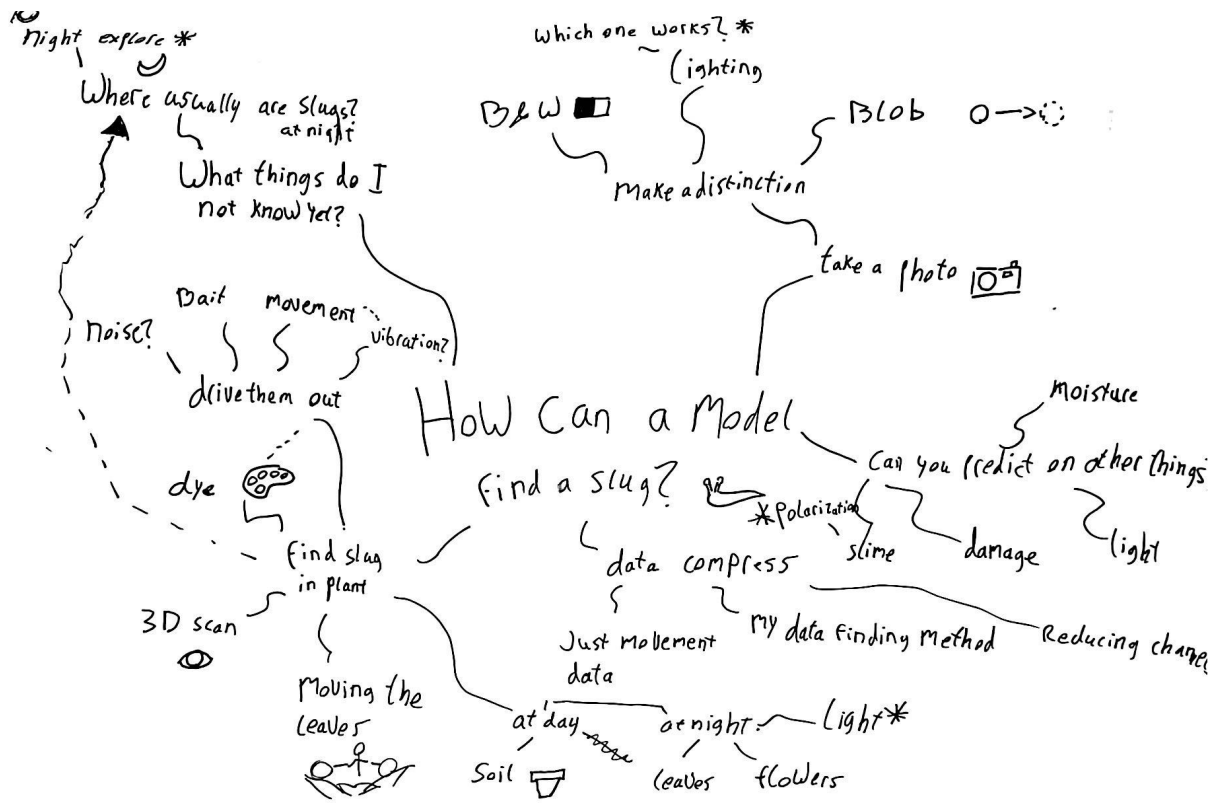 night explore *
Where usually are slugs?
at night
What things do I
not know yet?
Which one works? *
Lighting
B&W
Blob
Make a distinction
take a photo
Bait
movement
noise?
vibration?
drive them out
How Can a Model
find a slug?
moisture
Can you predict on other things
*polarization
slime
damage
light
dye
find slug
in plant
3D scan
Moving the
leaves
data compress
Just movement
data
my data finding method
Reducing
at day
soil
at night
leaves
flowers
light*